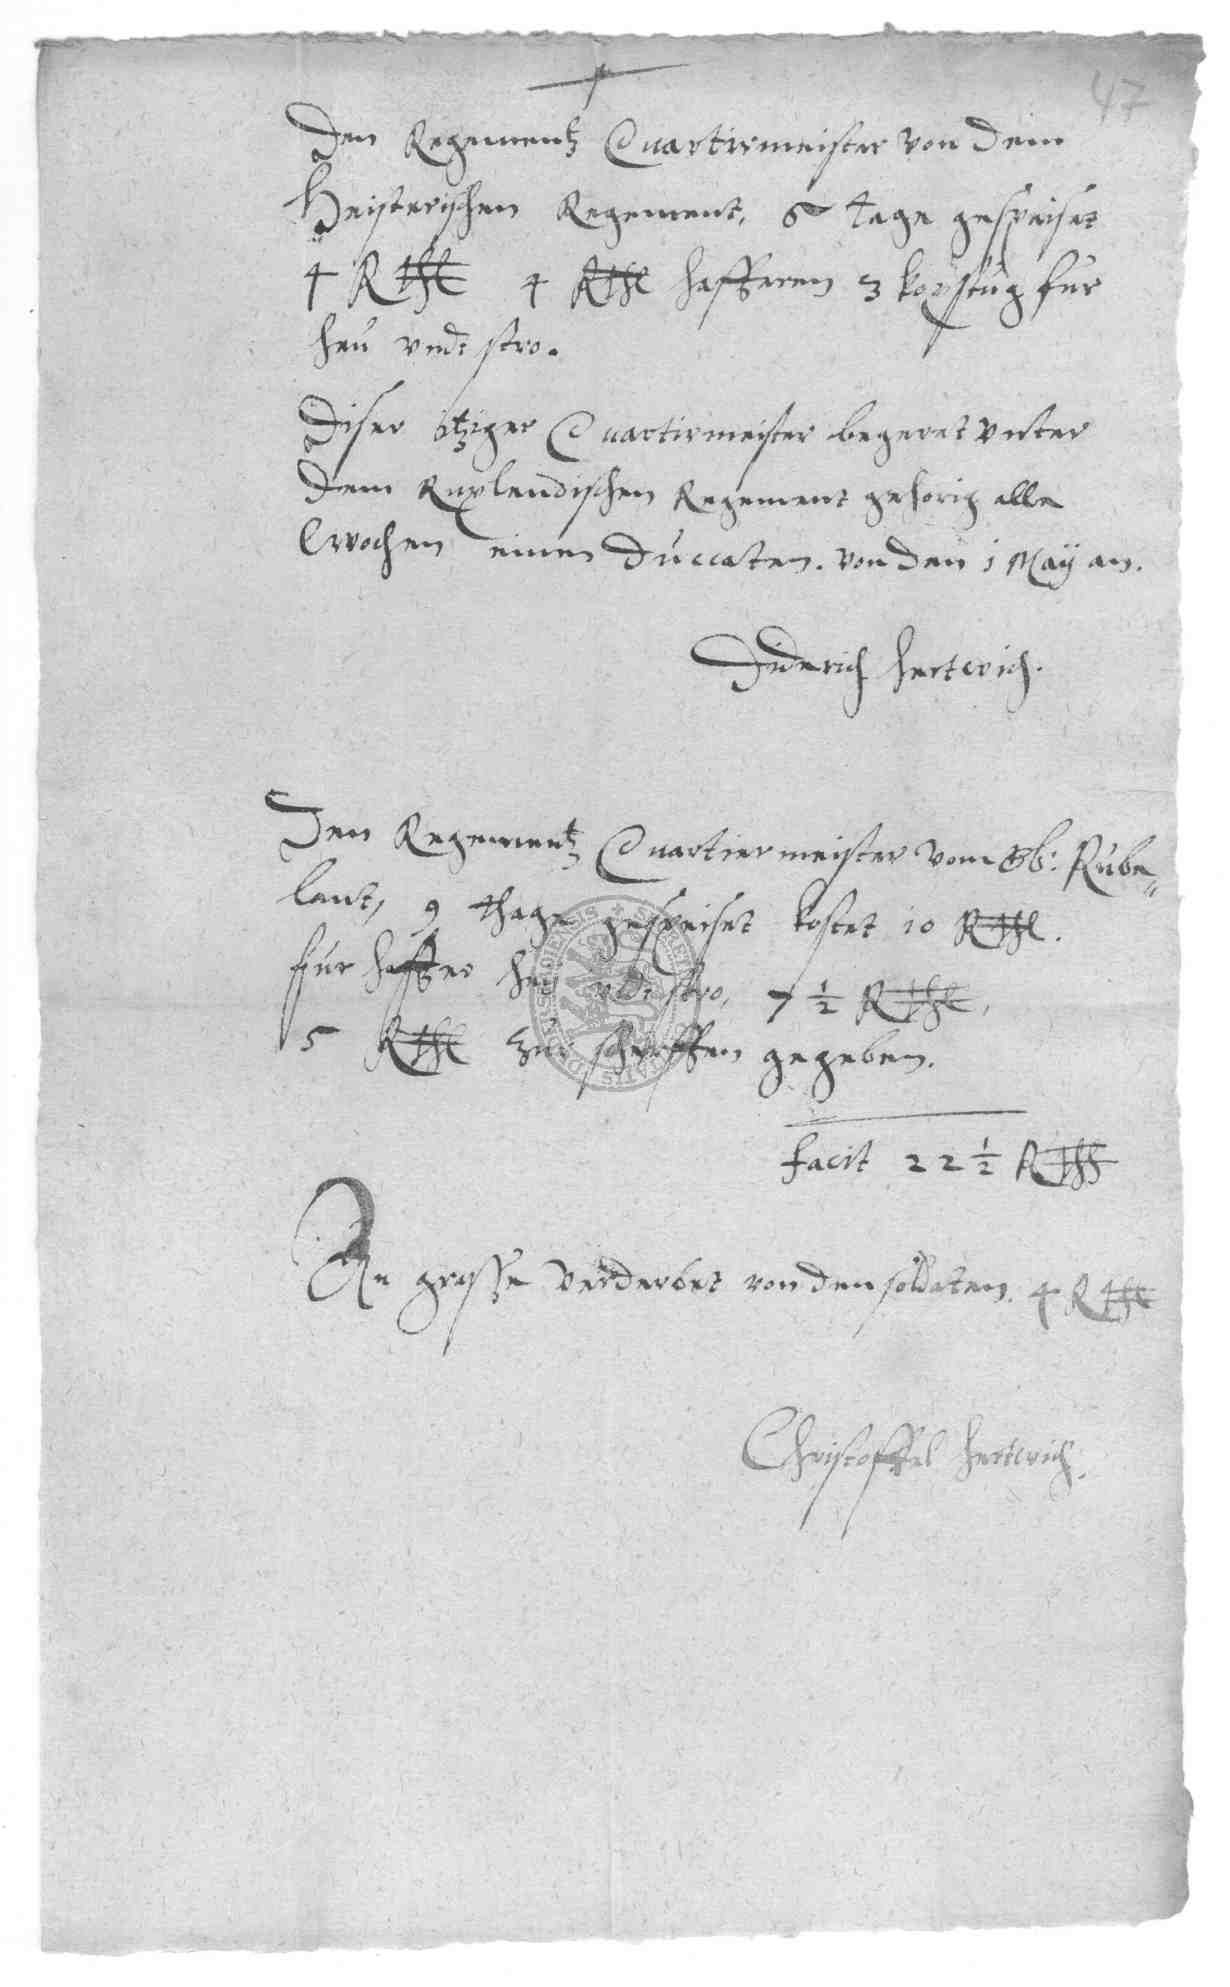 47
Den Regementz Quartirmeister von dem
Heisterischen Regement, 6 tage gespeiset
4 Rthl 4 Rthl haffaren 3 kopstug fur
heu vndt stro.
Diser itziger Quartirmeister begeret vnter
dem Ruplendischen Regement gehorig alle
Wochen einen Duccaten. von den 1 Maÿ an.
Diderich hertwich.
Den Regementz Quartiermeister vom Ob: Rube„
lant, 9 thage gespeiset kostet 10 Rthl.
fur haffer heu vndt stro, 7 1/2 Rthl,
5 Rthl zur scherffen gegeben.
facit 22 1/2 Rthl
An grasse verderbet von den soldaten. 4 Rthl
Christoffel hertwich.